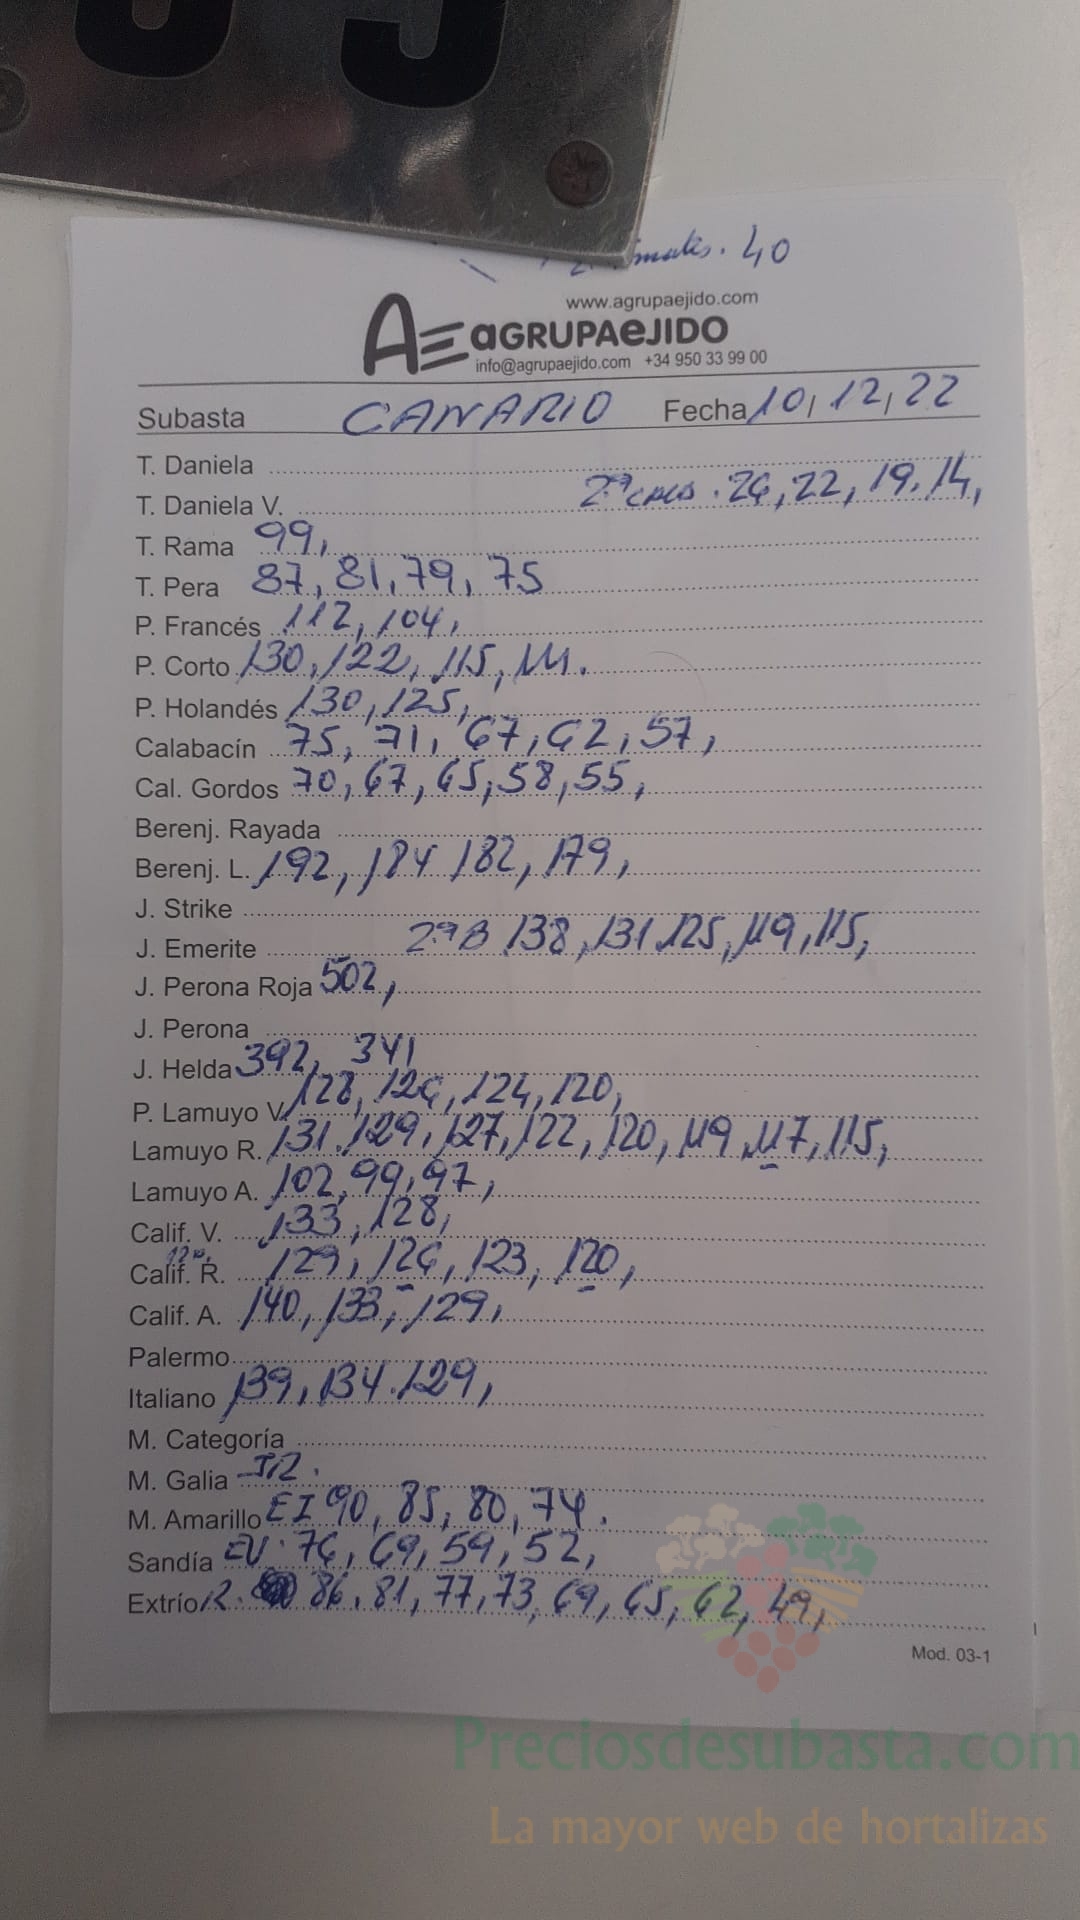 40
www.agrupaejido.com
AE aGRUPAeJIDO
info@agrupaejido.com +34 950 33 99 00
Subasta CANARIO Fecha 10, 12, 22
T. Daniela
T. Daniela V. 26, 22, 19. 14,
T. Rama 99,
T. Pera 87, 81, 79, 75
P. Francés 112, 104,
P. Corto 130, 122, 115, 111.
P. Holandés 130, 125,
Calabacín 75, 71, 67, 62, 57,
Cal. Gordos 70, 67, 65, 58, 55,
Berenj. Rayada
Berenj. L. 192, 184 182, 179,
J. Strike
J. Emerite 138, 131. 125, 119, 115,
J. Perona Roja 502,
J. Perona
J. Helda 392, 341
P. Lamuyo V. 128, 126, 124, 120,
Lamuyo R. 131. 129, 127, 122, 120, 119, 117, 115,
Lamuyo A. 102, 99, 97,
Calif. V. 133, 128,
Calif. R. 129, 126, 123, 120,
Calif. A. 140, 133, 129,
Palermo
Italiano 139, 134. 129,
M. Categoría
M. Galia
M. Amarillo EI 90, 85, 80, 74.
Sandía EV. 76, 69, 59, 52,
Extrío R. 86, 81, 77, 73, 69, 65, 62, 49,
Mod. 03-1
Preciosdesubasta.com
La mayor web de hortalizas